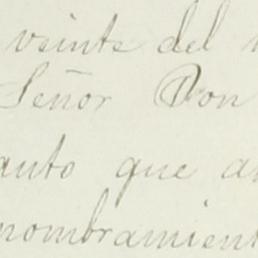 veinte del
Señor Don
anto que a
nombramient